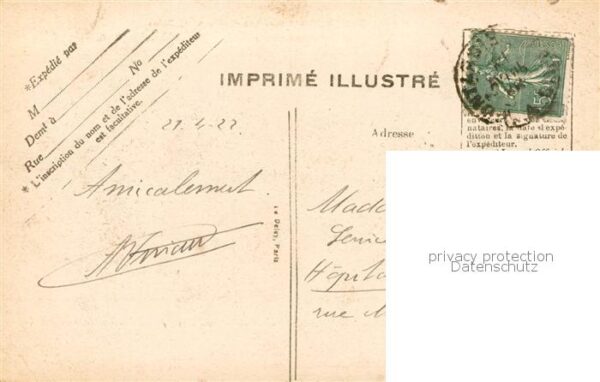 *Expédié par
M
Demt à
Rue
No
* L'inscription du nom et de l'adresse de l'expéditeur
est facultative.
IMPRIMÉ ILLUSTRÉ
21.4.22
Amicalement
Adresse
nataires, la date d'expé-
dition et la signature de
l'expéditeur.
Le Deley, Paris
Mada
Hôpita
rue
privacy protection
Datenschutz